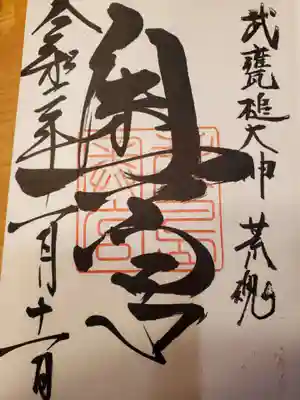 武甕槌大神 荒魂
奥宮
令和二年十一月十一日